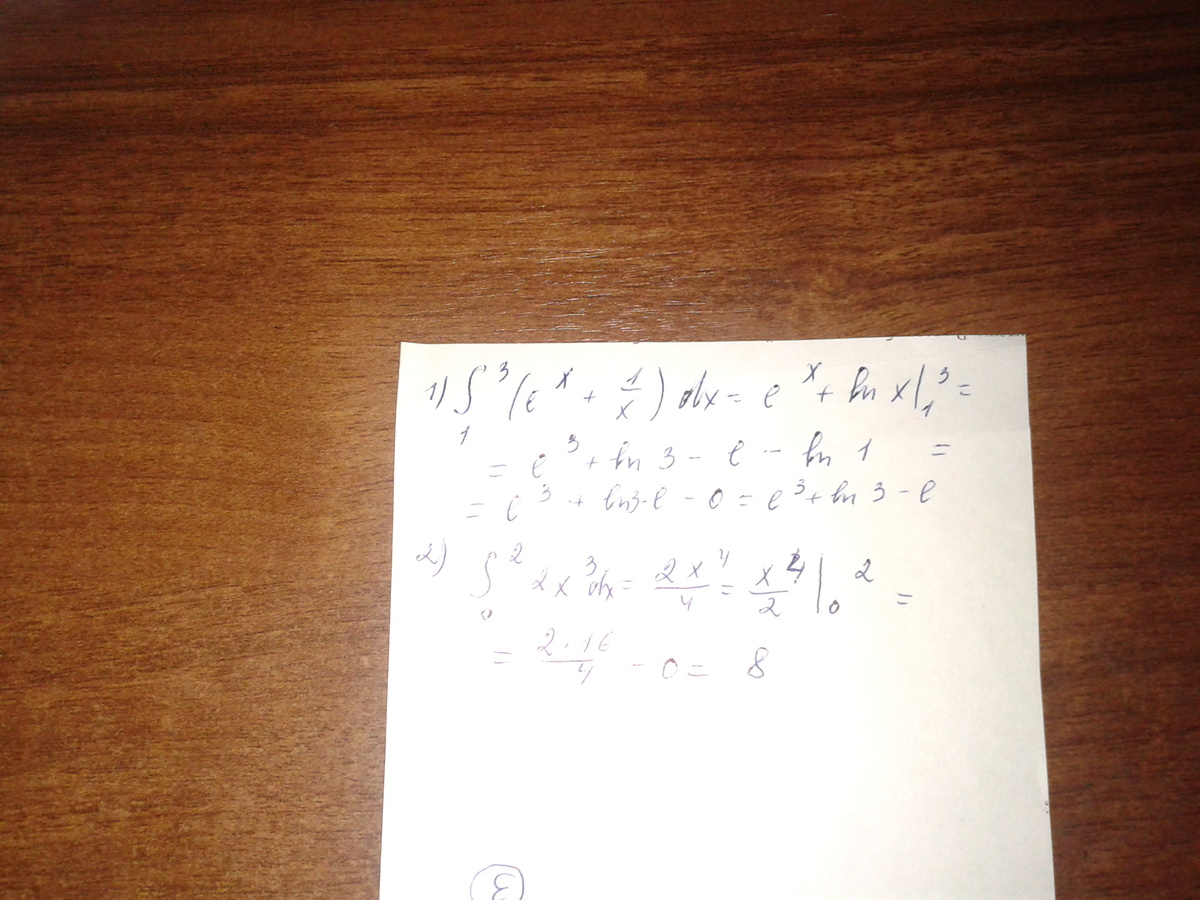 1) ∫₁³ (eˣ + 1/x) dx = eˣ + ln x |₁³ =
= e³ + ln 3 - e - ln 1 =
= e³ + ln3-e - 0 = e³ + ln 3 - e
2) ∫₀² 2x³dx = 2x⁴/4 = x⁴/2 |₀² =
= 2·16/4 - 0 = 8
3